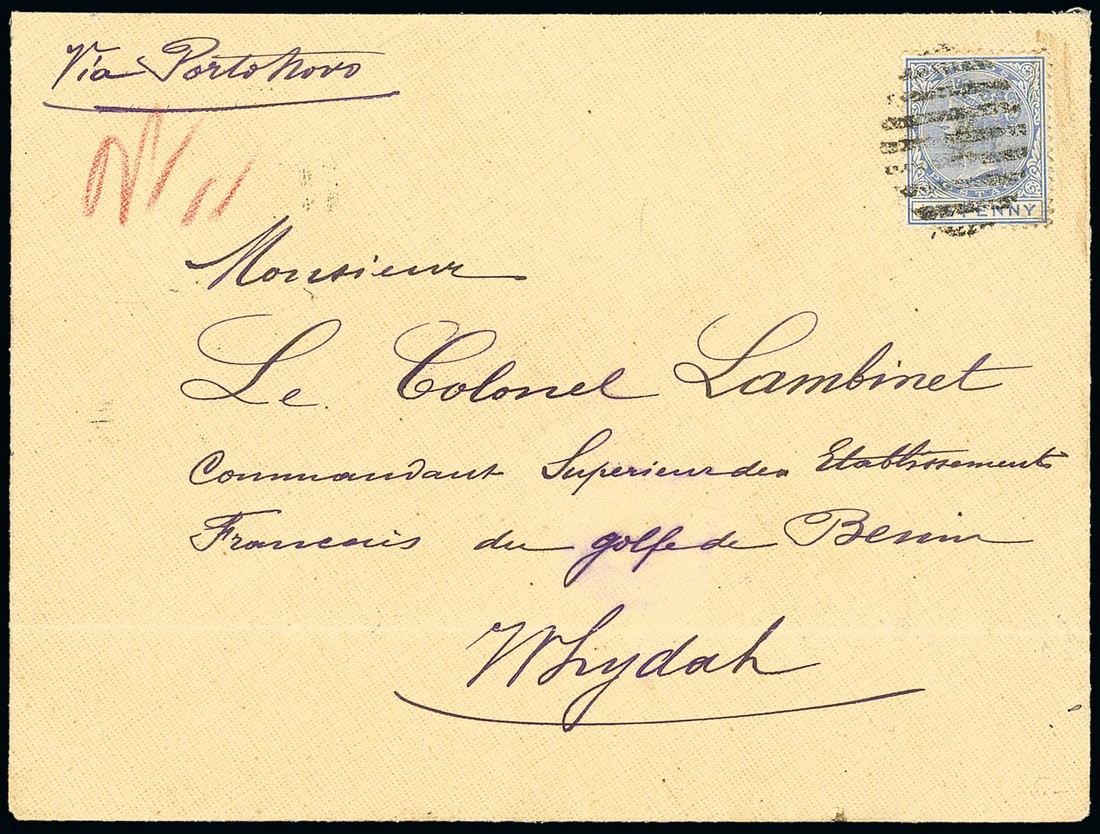 Via Porto Novo
POSTA
PENNY
Monsieur
Le Colonel Lambinet
Commandant Superieur des Etablissements
Francais du golfe de Benin
Whydah